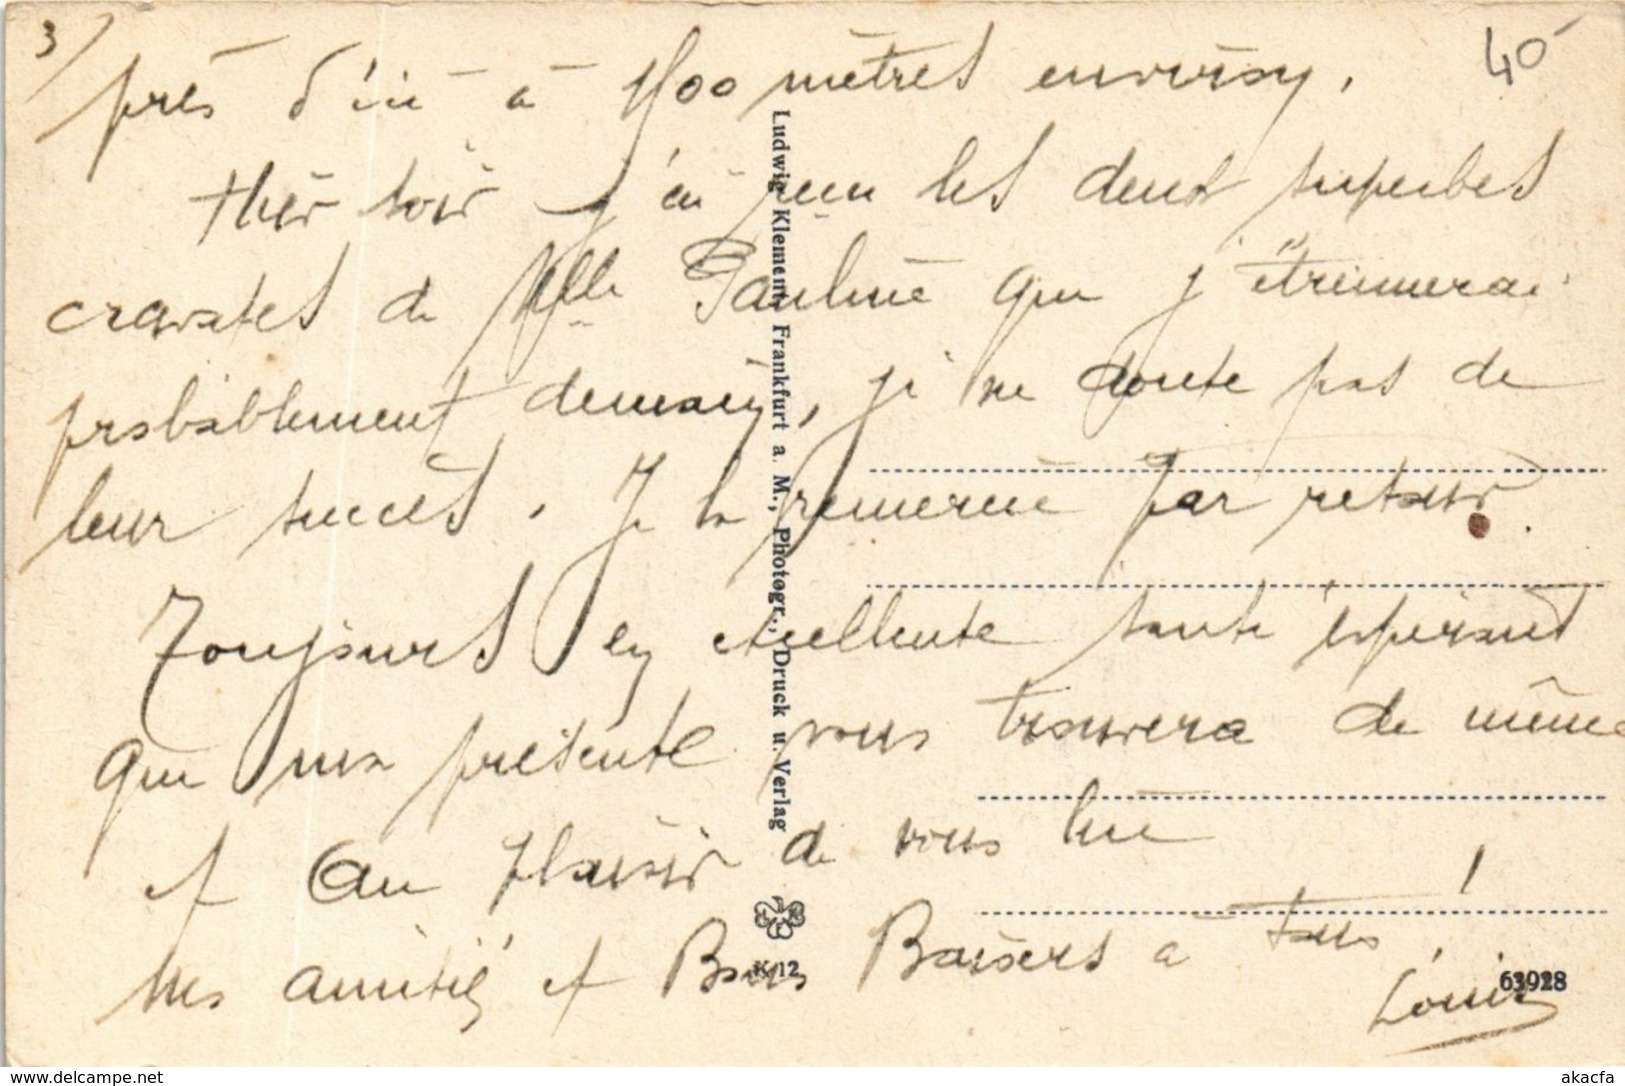 3/
40
près d'ici à 400 mètres environ.
Hier soir j'ai reçu les deux superbes
cravates de Mlle Pauline que j'étrennerai
probablement demain, je ne doute pas de
leur succès. Je la remercie par retour.
Toujours en excellente santé espérant
que ma présente vous trouvera de même
et au plaisir de vous lire
Mes amitiés et Bons Baisers a tous !
Louis
Ludwig Klement, Frankfurt a. M., Photogr., Druck u. Verlag
K/12
www.delcampe.net
akacfa